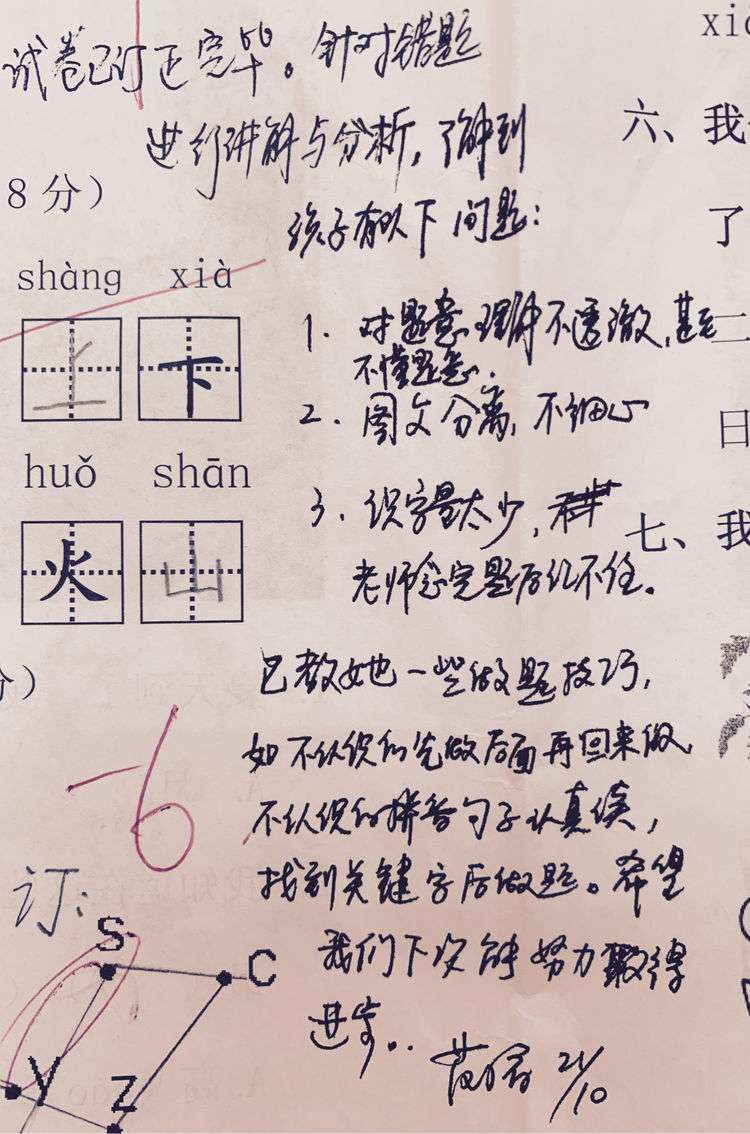 试卷已订正完毕。针对错题
进行讲解与分析，了解到
孩子有以下问题：
1. 对题意理解不透澈，甚至
不懂题意.
2. 图文分离，不细心
3. 识字量太少，
老师念完题后记不住。
已教她一些做题技巧，
如不认识的先做后面再回来做，
不认识的拼音句子认真读，
找到关键字后做题。希望
我们下次能努力取得
进步。
21/10
8分）
shàng xià
上 下
huǒ shān
火 山
分）
-6
订：
S
C
Y
Z
xi
六、我
了
二
日
七、我